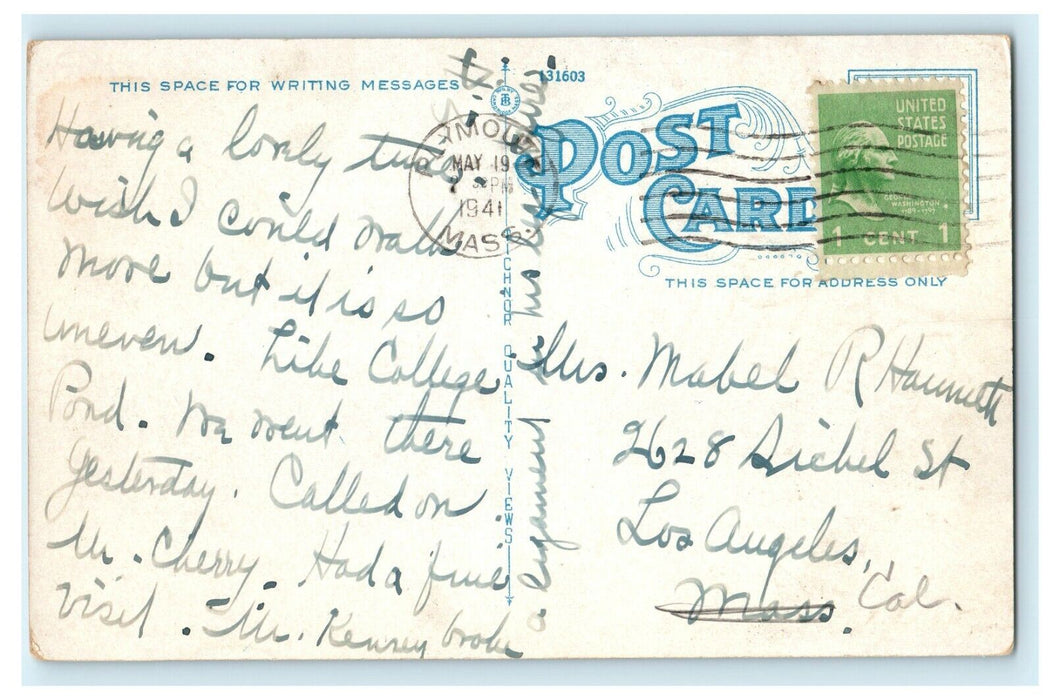 THIS SPACE FOR WRITING MESSAGES
Having a lovely time.
Wish I could walk
more but it is so
uneven. Like College
Pond. We went there
yesterday. Called on
Mr. Cherry. Had a fine
visit. Mr. Kenney broke
a ligament
his
TECHNOR QUALITY VIEWS
131603
POST CARD
PLYMOUTH
MAY 19
PM
1941
MASS.
UNITED
STATES
POSTAGE
GEORGE
WASHINGTON
1789-1797
1 CENT 1
THIS SPACE FOR ADDRESS ONLY
Mrs. Mabel R Hammett
2628 Sichel St
Los Angeles,
Mass. Cal.